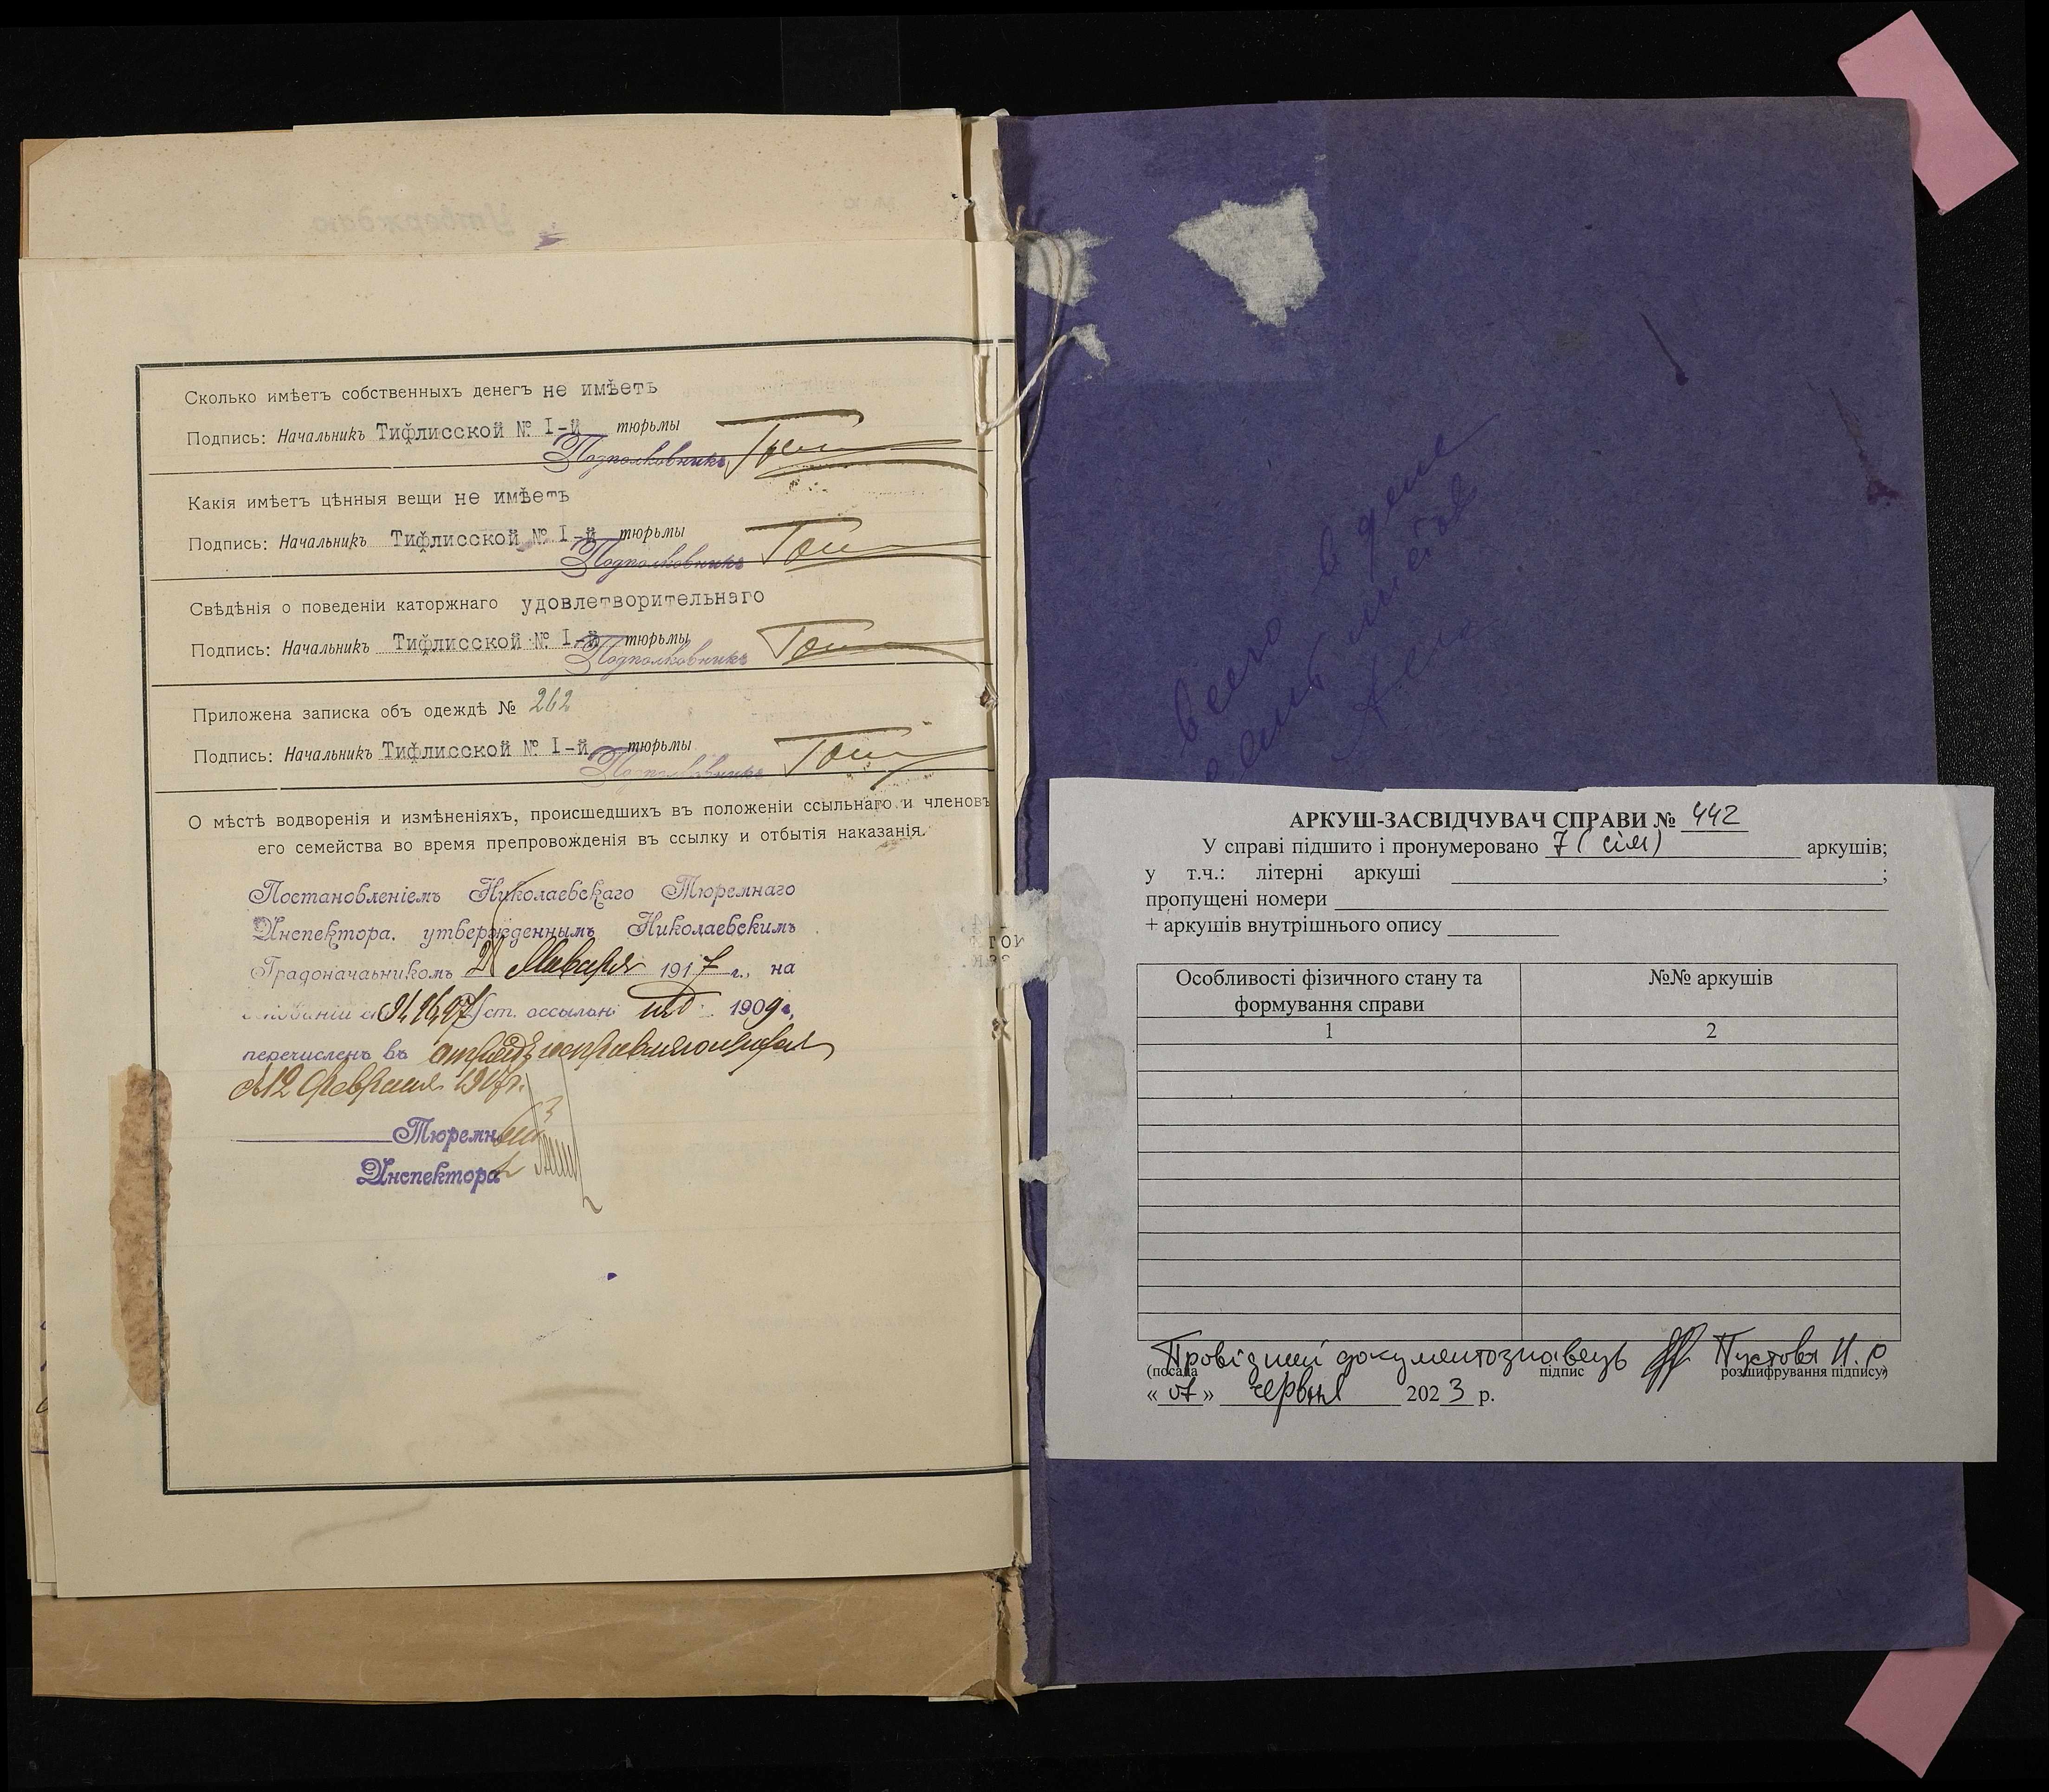 Сколько имѣетъ собственныхъ денегъ не имѣетъ
Подпись: Начальникъ Тифлисской № I-й тюрьмы
Подполковникъ
Какія имѣетъ цѣнныя вещи не имѣетъ
Подпись: Начальникъ Тифлисской № I-й тюрьмы
Подполковникъ
Свѣдѣнія о поведеніи каторжнаго удовлетворительнаго
Подпись: Начальникъ Тифлисской № I-й тюрьмы
Подполковникъ
Приложена записка объ одеждѣ № 262
Подпись: Начальникъ Тифлисской № I-й тюрьмы
Подполковникъ
О мѣстѣ водворенія и измѣненіяхъ, происшедшихъ въ положеніи ссыльнаго и членовъ
его семейства во время препровожденія въ ссылку и отбытія наказанія.
Постановленіемъ Николаевскаго Тюремнаго
Инспектора, утвержденнымъ Николаевскимъ
Градоначальникомъ Января 1917 г., на
ст. 1909 г.
перечисленъ въ
12 Февраля 1917 г.
Тюремн
Инспектора
Утверждаю
всего в деле
семь листов
АРКУШ-ЗАСВІДЧУВАЧ СПРАВИ № 442
У справі підшито і пронумеровано 7 (сім) аркушів;
у т.ч.: літерні аркуші ;
пропущені номери
+ аркушів внутрішнього опису
Особливості фізичного стану та формування справи №№ аркушів
1 2
Провідний документознавець Пустова Н. О
(посада підпис розшифрування підпису)
« 07 » червня 2023 р.